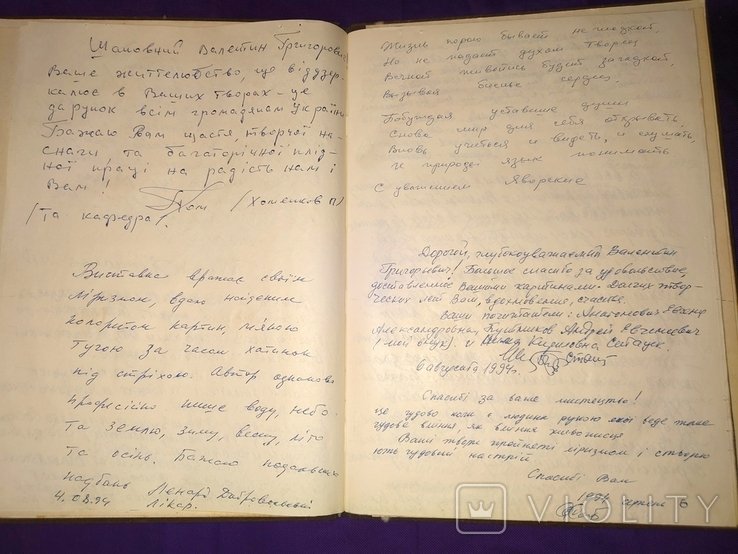 Шановний Валентин Григорович
Ваше життєлюбство, що віддзер-
калює в Ваших творах - це
дарунок всім громадянам України
Бажаю Вам щастя, творчої на-
снаги та багаторічної плід-
ної праці на радість нам і
Вам!
/Та кафедра/
Виставка вражає своїм
ліризмом, вдало найденим
колоритом картин, м'якою
тугою за часом хатинок
під стріхою. Автор однаково
професійно пише воду, небо
та землю, зиму, весну, літо
та осінь. Бажаю подальших
надбань
4.08.94 Лікар.
Жизнь порою бывает не гладкой,
Но не падает духом Творец
Вечной живопись будит загадкой,
Вызывая биенье сердец.
Побуждая уставшие души
Снова мир для себя открывать,
Вновь учиться и видеть, и слушать,
И природы язык понимать
С уважением Яворские
Дорогой, глубокоуважаемый Валентин
Григорьевич! Большое спасибо за удовольствие,
доставленное Вашими картинами. Долгих твор-
ческих лет Вам, вдохновения, счастья.
Ваши почитатели: Анатомович Евгения
Александровна, Кушников Андрей Евгениевич
(мой внук). и
6 августа 1994г.
Спасибі за ваше мистецтво!
Це чудово коли є людина рукою якої веде таке
чудове вміння, як вміння живопису
Ваші твори пройняті ліризмом і створю
ють чудовий настрій
Спасибі Вам
1994 серпень 6
VIOLITY